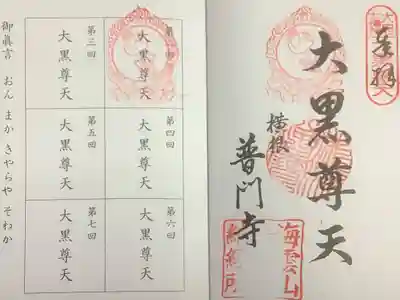 奉拝
大黒尊天
横根
普門寺
海雲山
大黒尊天
第三回
大黒尊天
第四回
大黒尊天
第五回
大黒尊天
第六回
大黒尊天
第七回
大黒尊天
御眞言 おん まか きゃらや そわか